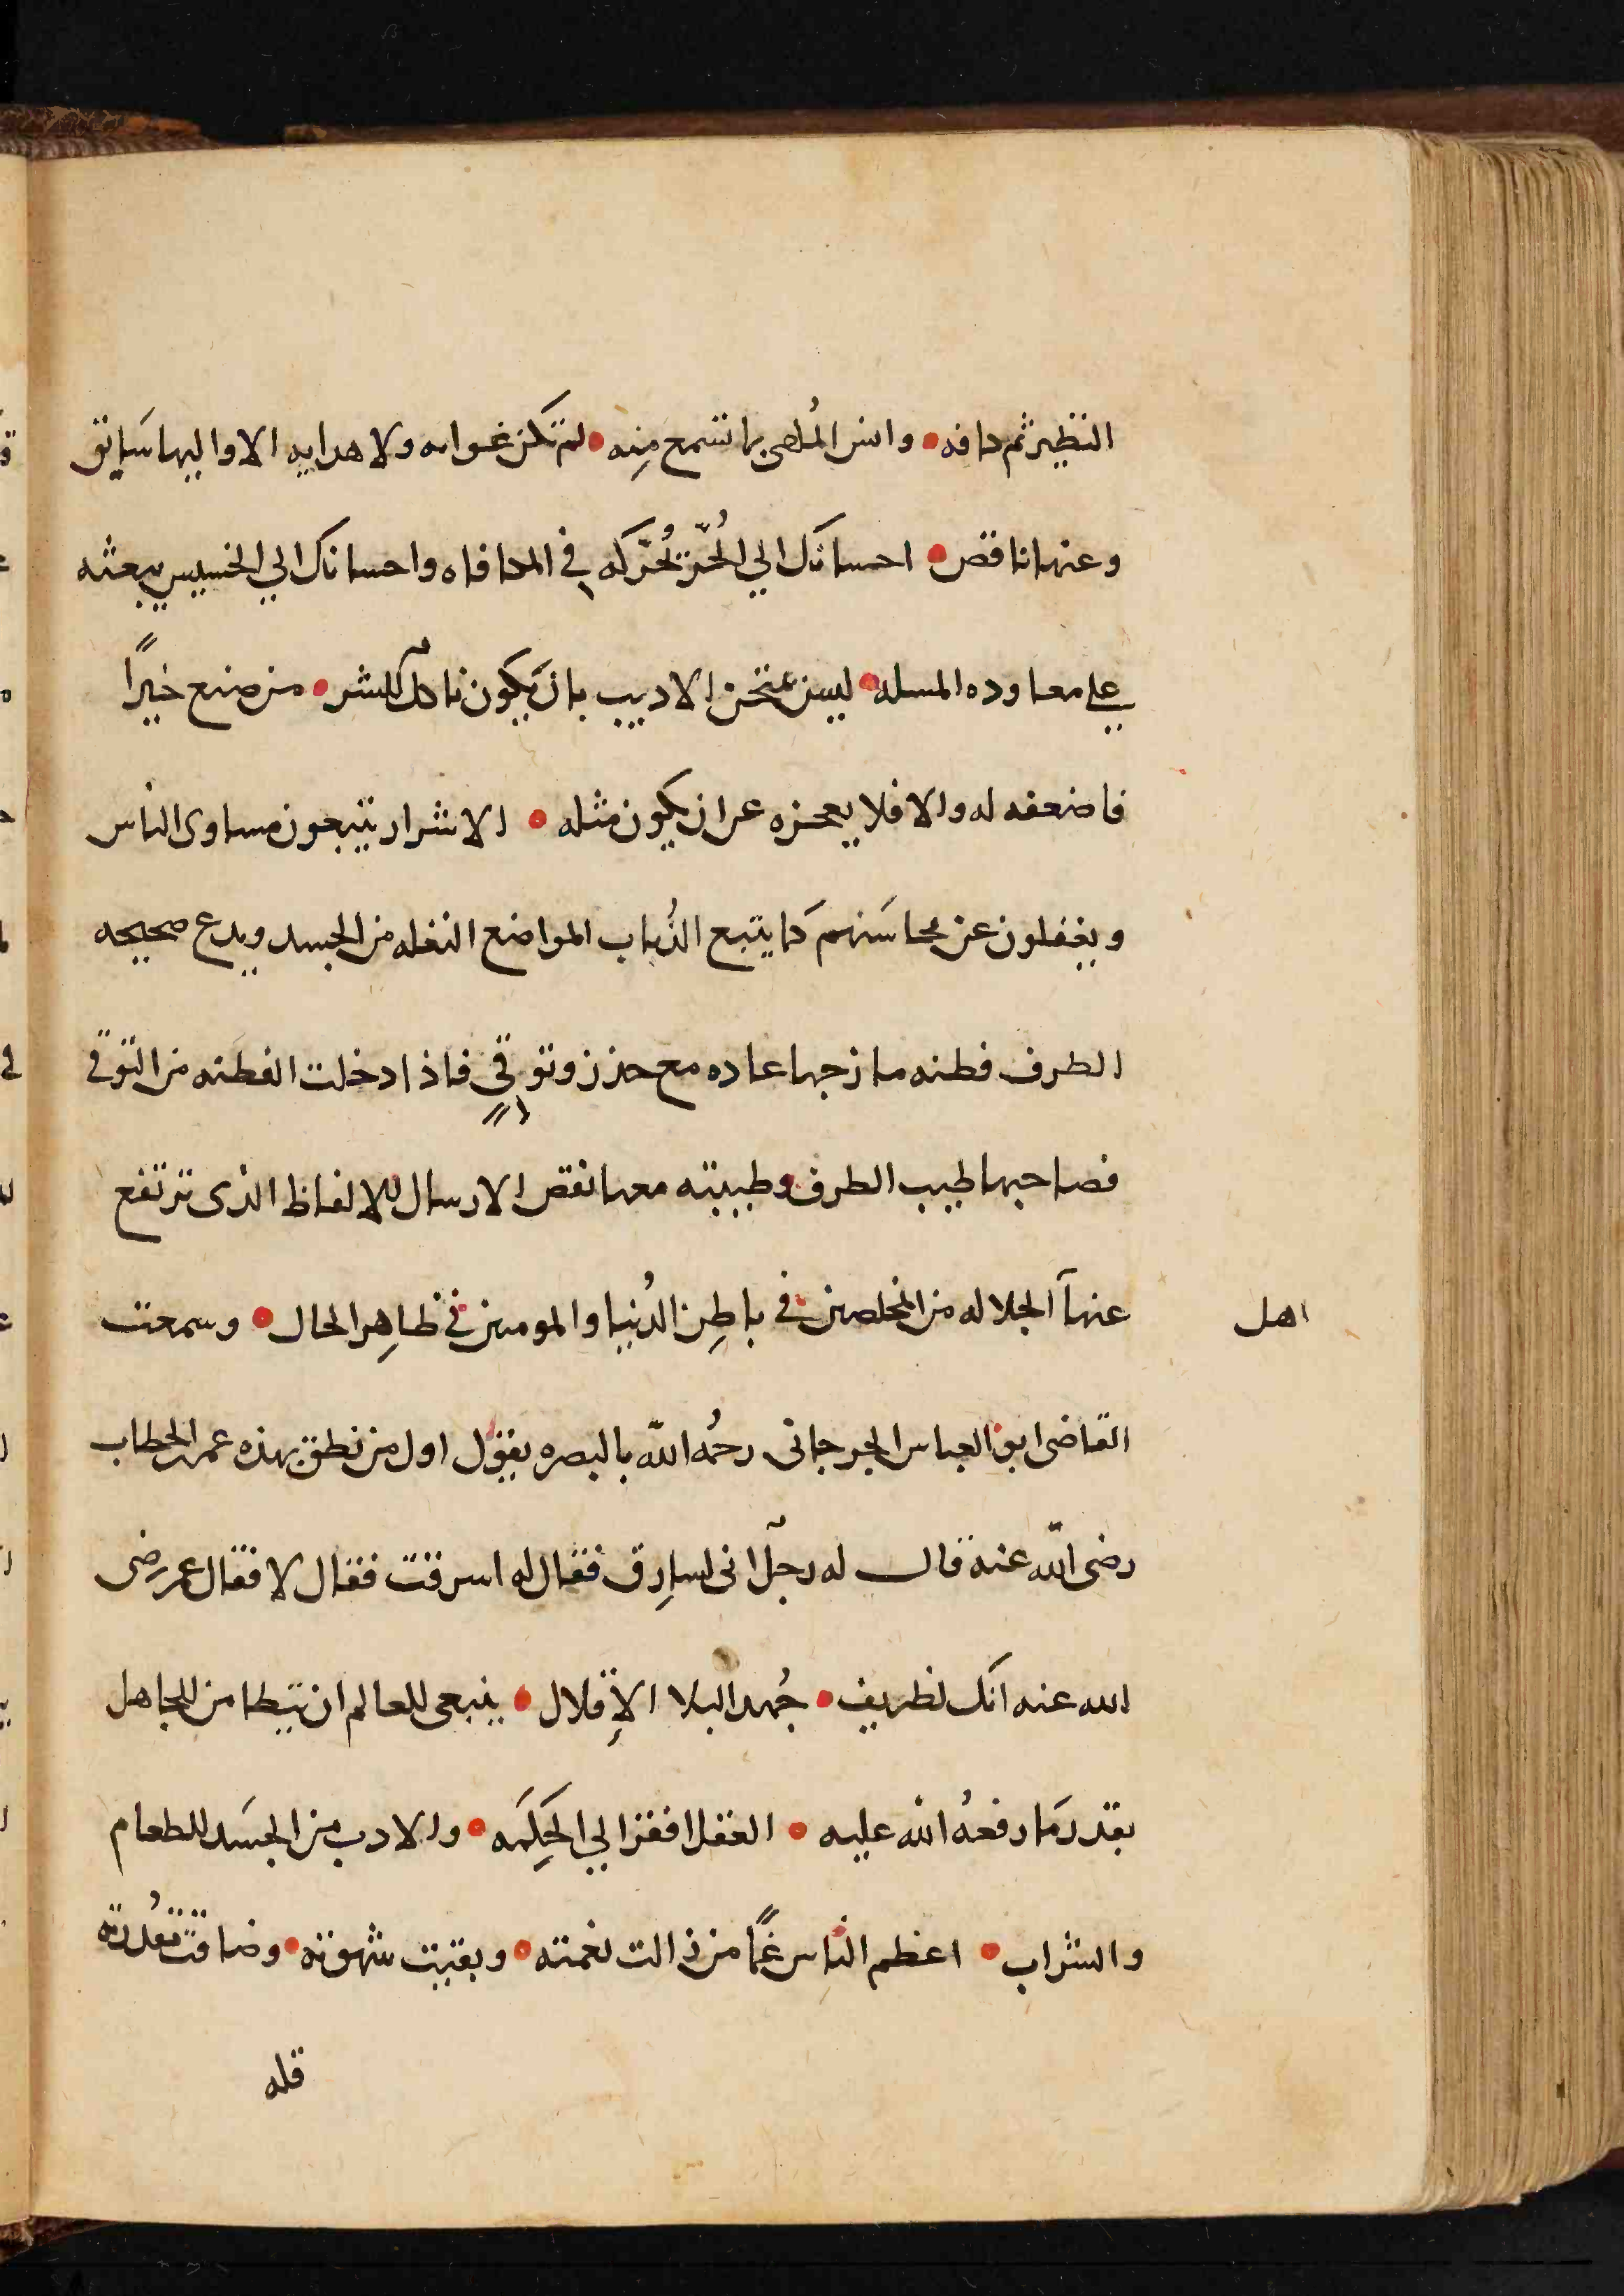 النظير ثم كافه • وانس المُلهى بما تسمع مِنه • لم تكن غوايه ولا هدايه الا واليها سَايق
وعنها ناقص • احسانك الي الحُرّ يُحَرّكه في المكافاه واحسانك الي الخسيس يبعثه
علي معاوده المسله • ليس يمتحن الاديب بان يَكون ناكل للشر • من صنع خيرًا
فاضعفه له والا فلا يعجزه عن ان يكون مثله • الاشرار يتبعون مساوى الناس
ويغفلون عن محاسَنهم كَما يتبع الذُباب المواضع النغله من الجسد ويدع صحيحه
الظرف فطنه مازجها عاده مع حذر وتوقيٍ فاذا دخلت الفطنه من التوقي
فصاحبها طيب الظرف وطيبته معها نقص الارسال للالفاظ الذى ترتفع
عنها الجلاله من المخلصين في باطِن الدُنيا والمومنين في ظاهِر الحال • وسمعت
اهل
القاضى ابو العباس الجرجانى رحمُه اللّه بالبصره يقول اول من نطق بهذه عمر الخطاب
رضى اللّه عنه قال له رجل انى لسارِق فقال له اسرقت فقال لا فقال عمر رضى
الله عنه انك لظريف • جُهد البلا الإقلال • ينبغى للعالم ان يتطامن للجاهل
بقدر مَا رفعهُ اللّه عليه • العقل افقر الي الحِكمَه • والادب من الجسَد للطعام
والشراب • اعظم الناس غمًا من زالت نعمته • وبقيت شهوته • وضاقت مقدُرته
قله